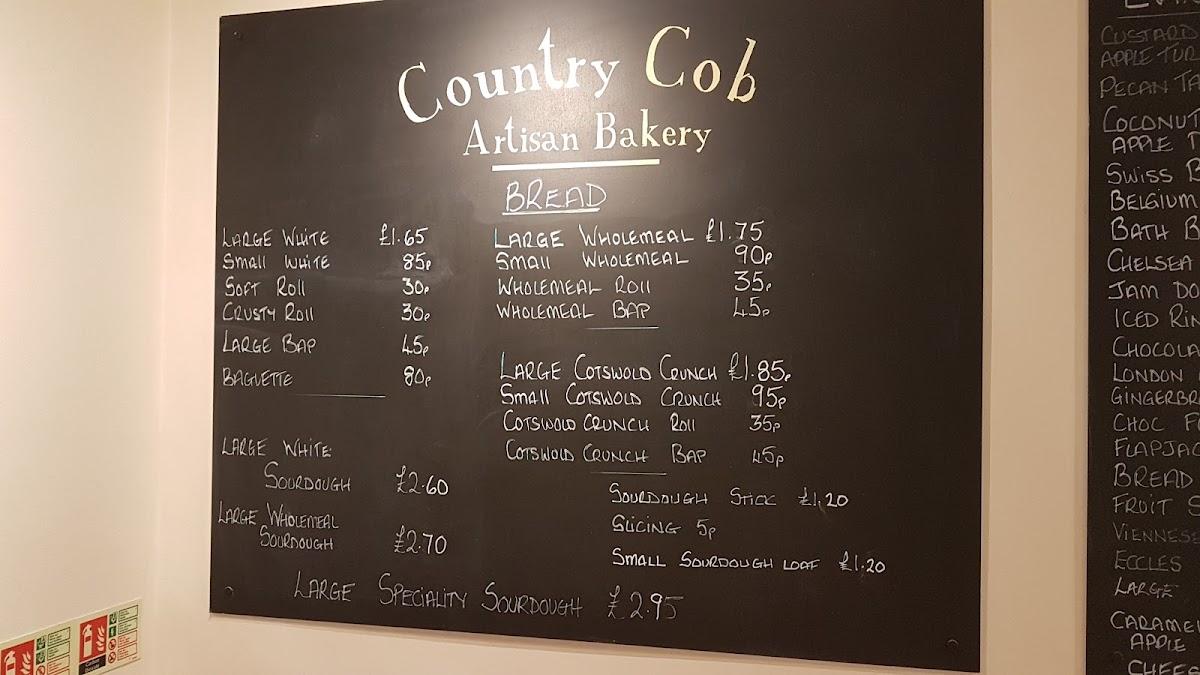 Country Cob
Artisan Bakery
BREAD
LARGE WHITE £1.65
SMALL WHITE 85p
SOFT ROLL 30p
CRUSTY ROLL 30p
LARGE BAP 45p
BAGUETTE 80p
LARGE WHITE
SOURDOUGH £2.60
LARGE WHOLEMEAL
SOURDOUGH £2.70
LARGE WHOLEMEAL £1.75
SMALL WHOLEMEAL 90p
WHOLEMEAL ROLL 35p
WHOLEMEAL BAP 45p
LARGE COTSWOLD CRUNCH £1.85p
SMALL COTSWOLD CRUNCH 95p
COTSWOLD CRUNCH ROLL 35p
COTSWOLD CRUNCH BAP 45p
SOURDOUGH STICK £1.20
SLICING 5p
SMALL SOURDOUGH LOAF £1.20
LARGE SPECIALITY SOURDOUGH £2.95
CUSTARD
APPLE TUR
PECAN
COCONUT
APPLE
SWISS B
BELGIUM
BATH B
CHELSEA
JAM DO
ICED RIN
CHOCOLA
LONDON
GINGERBR
CHOC FO
FLAPJAC
BREAD
FRUIT S
VIENNESE
ECCLES
LARGE
CARAME
APPLE
CHEES